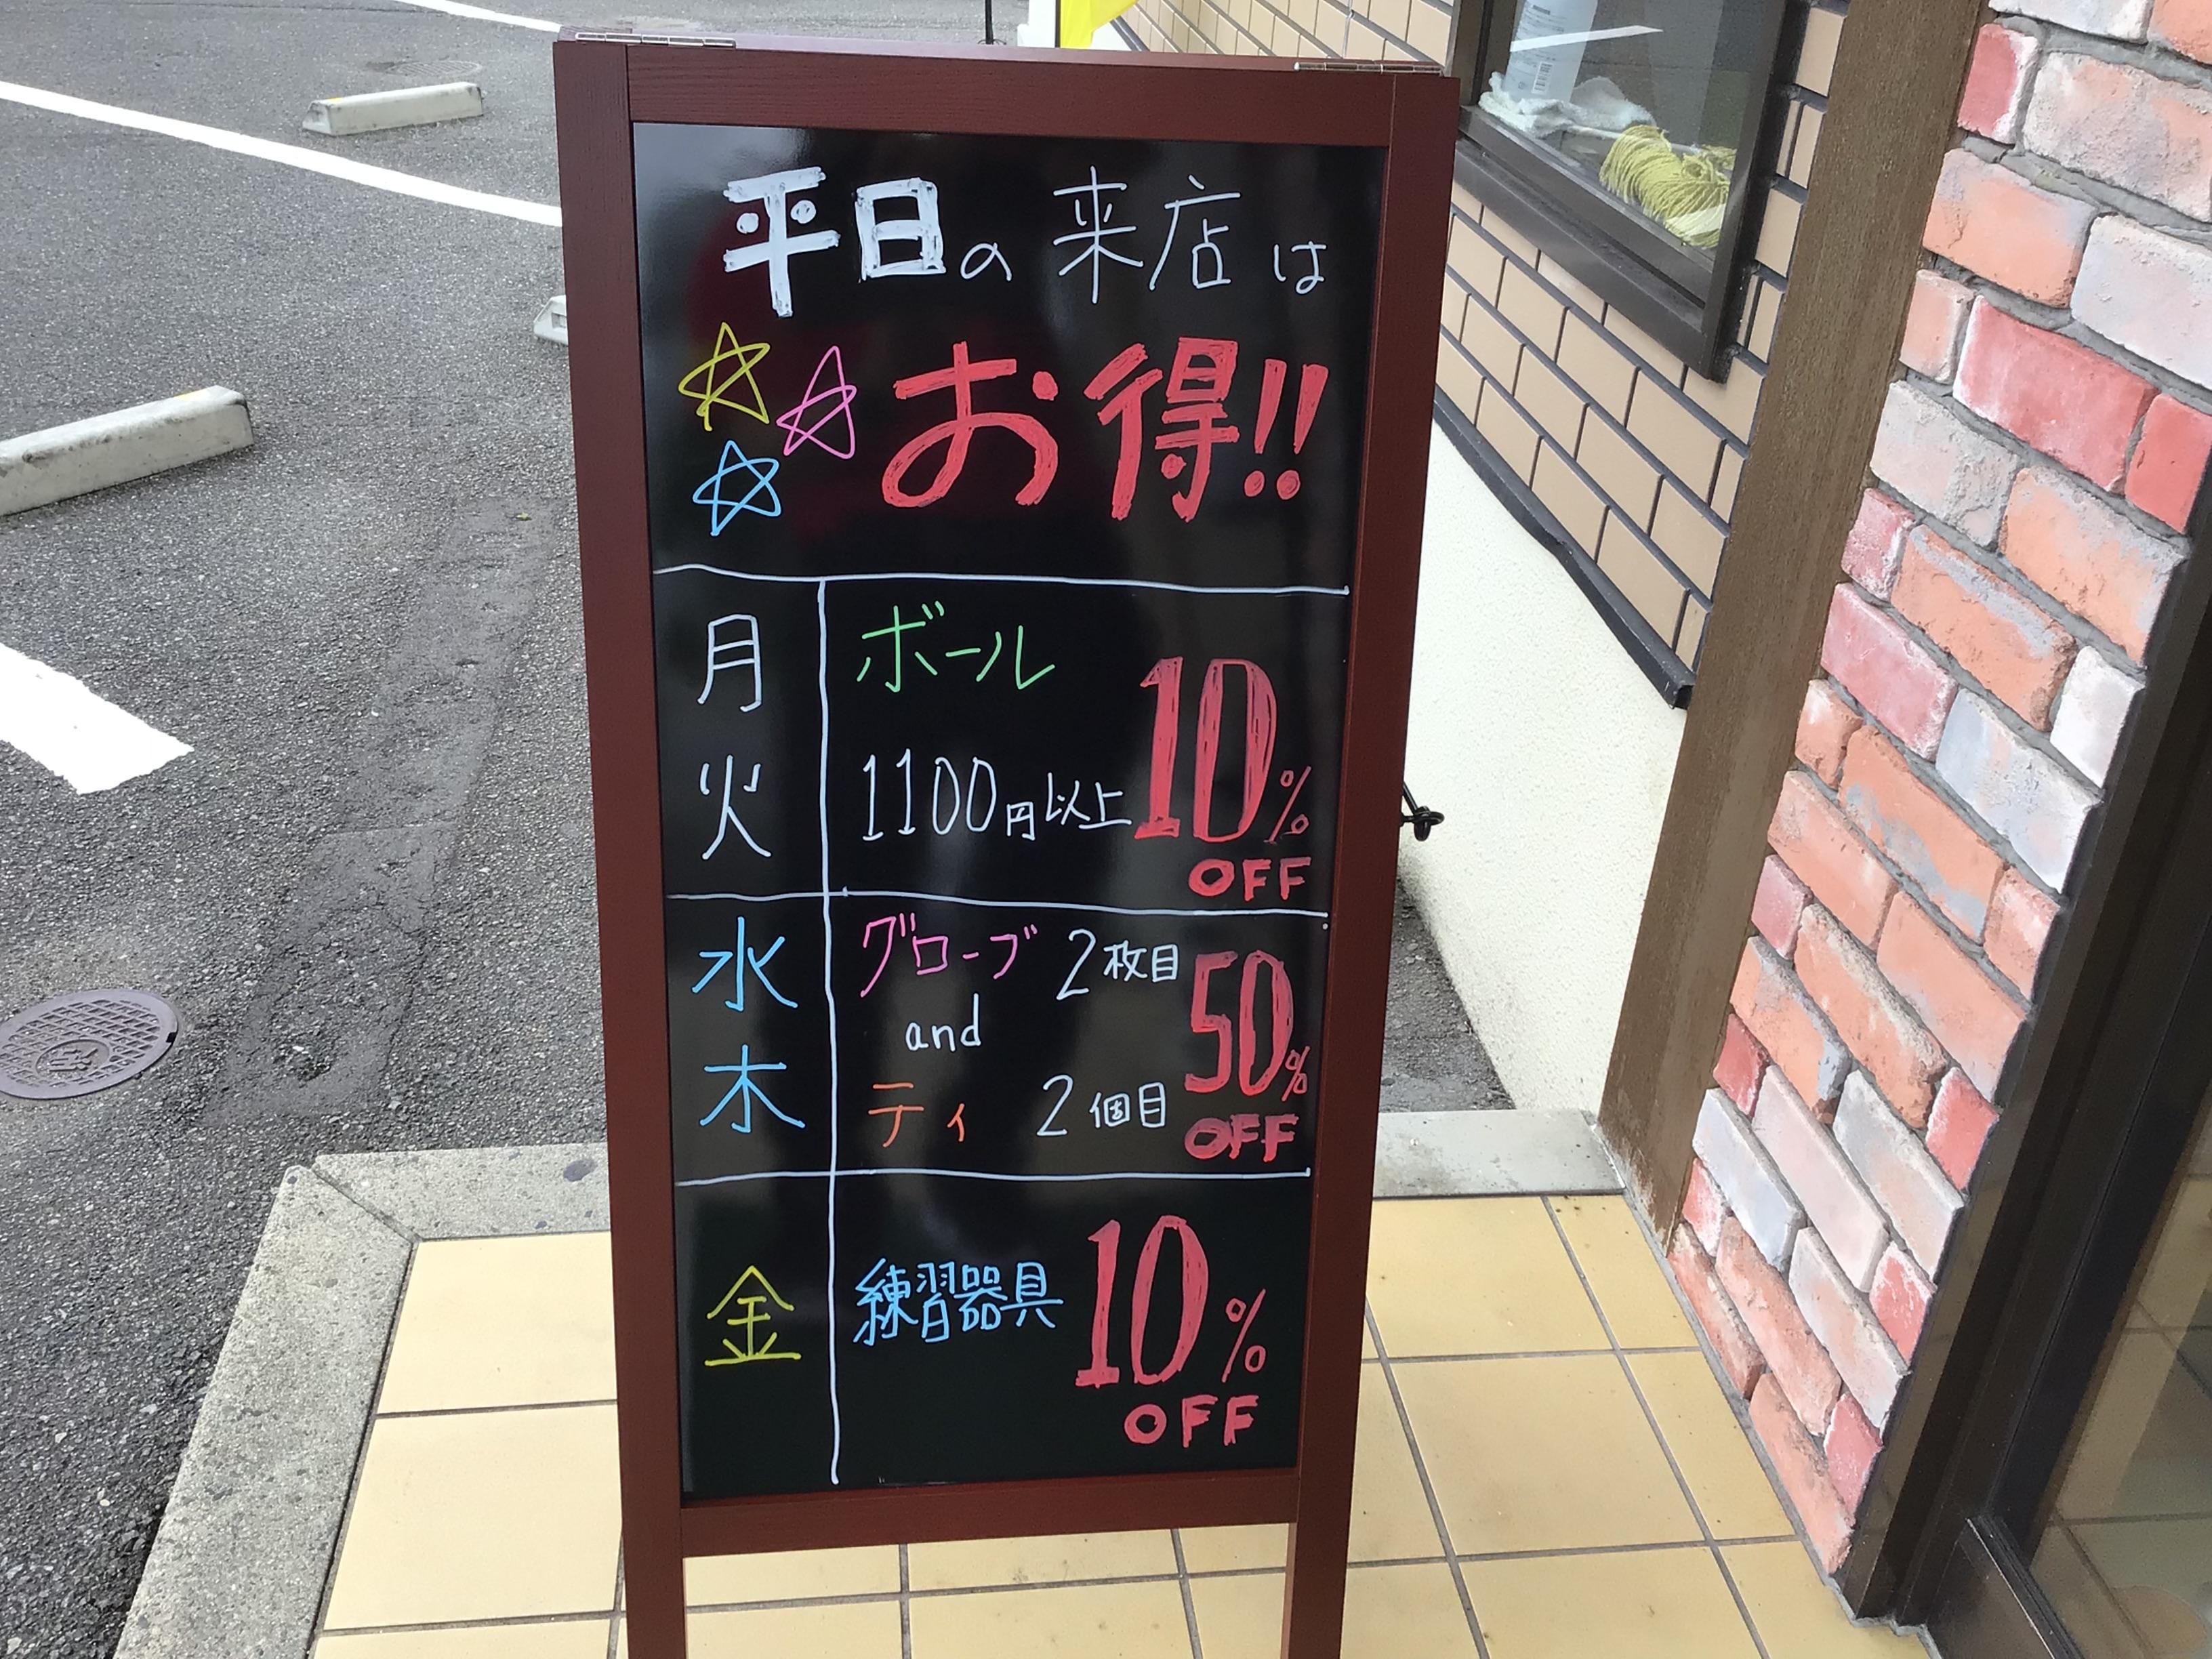 平日の来店は
お得!!
月
火
ボール
1100円以上
10%
OFF
水
木
グローブ 2枚目
and
ティ 2個目
50%
OFF
金
練習器具
10%
OFF